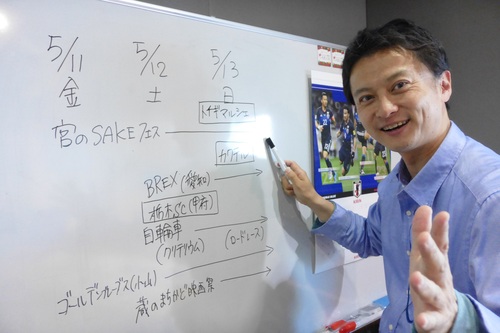 5/11 5/12 5/13
金 土 日
トチギマルシェ
宮のSAKEフェス
カクテル
BREX(愛知)
栃木SC(甲府)
自輪車
(クリテリウム) (ロードレース)
ゴールデンブレーブス(小山)
蔵のまちかど映画祭